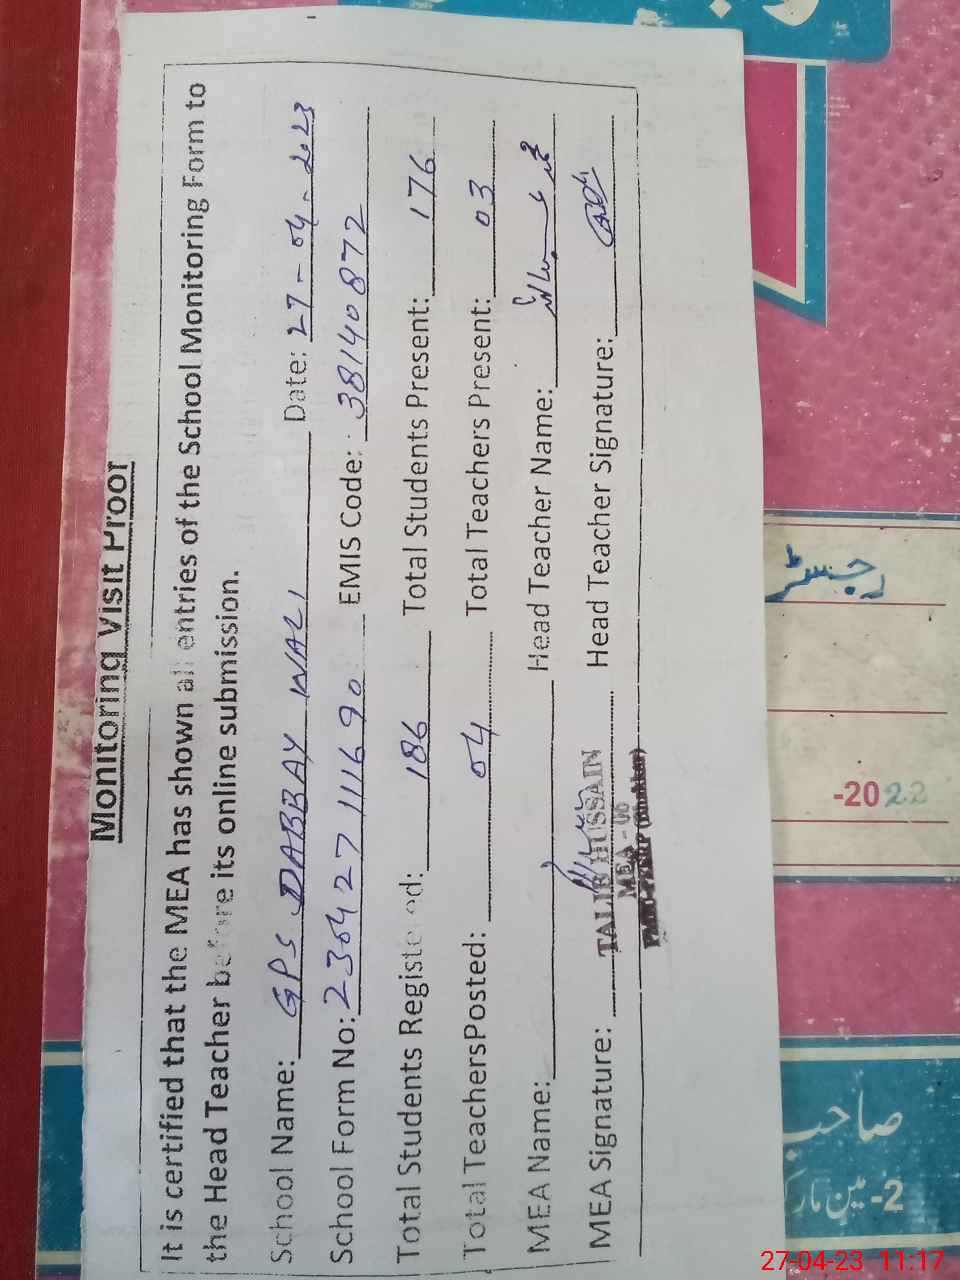 Monitoring Visit Proof
It is certified that the MEA has shown all entries of the School Monitoring Form to
the Head Teacher before its online submission.
School Name: GPS DABBAY WALI Date: 27-04-2023
School Form No: 2304271111690 EMIS Code: 38140872
Total Students Registered: 186 Total Students Present: 176
Total TeachersPosted: 04 Total Teachers Present: 03
MEA Name: Head Teacher Name:
MEA Signature: Head Teacher Signature:
TALIB HUSSAIN
MEA - 06
رجسٹر
-2022
صاحب
2- مین
27-04-23 11:17